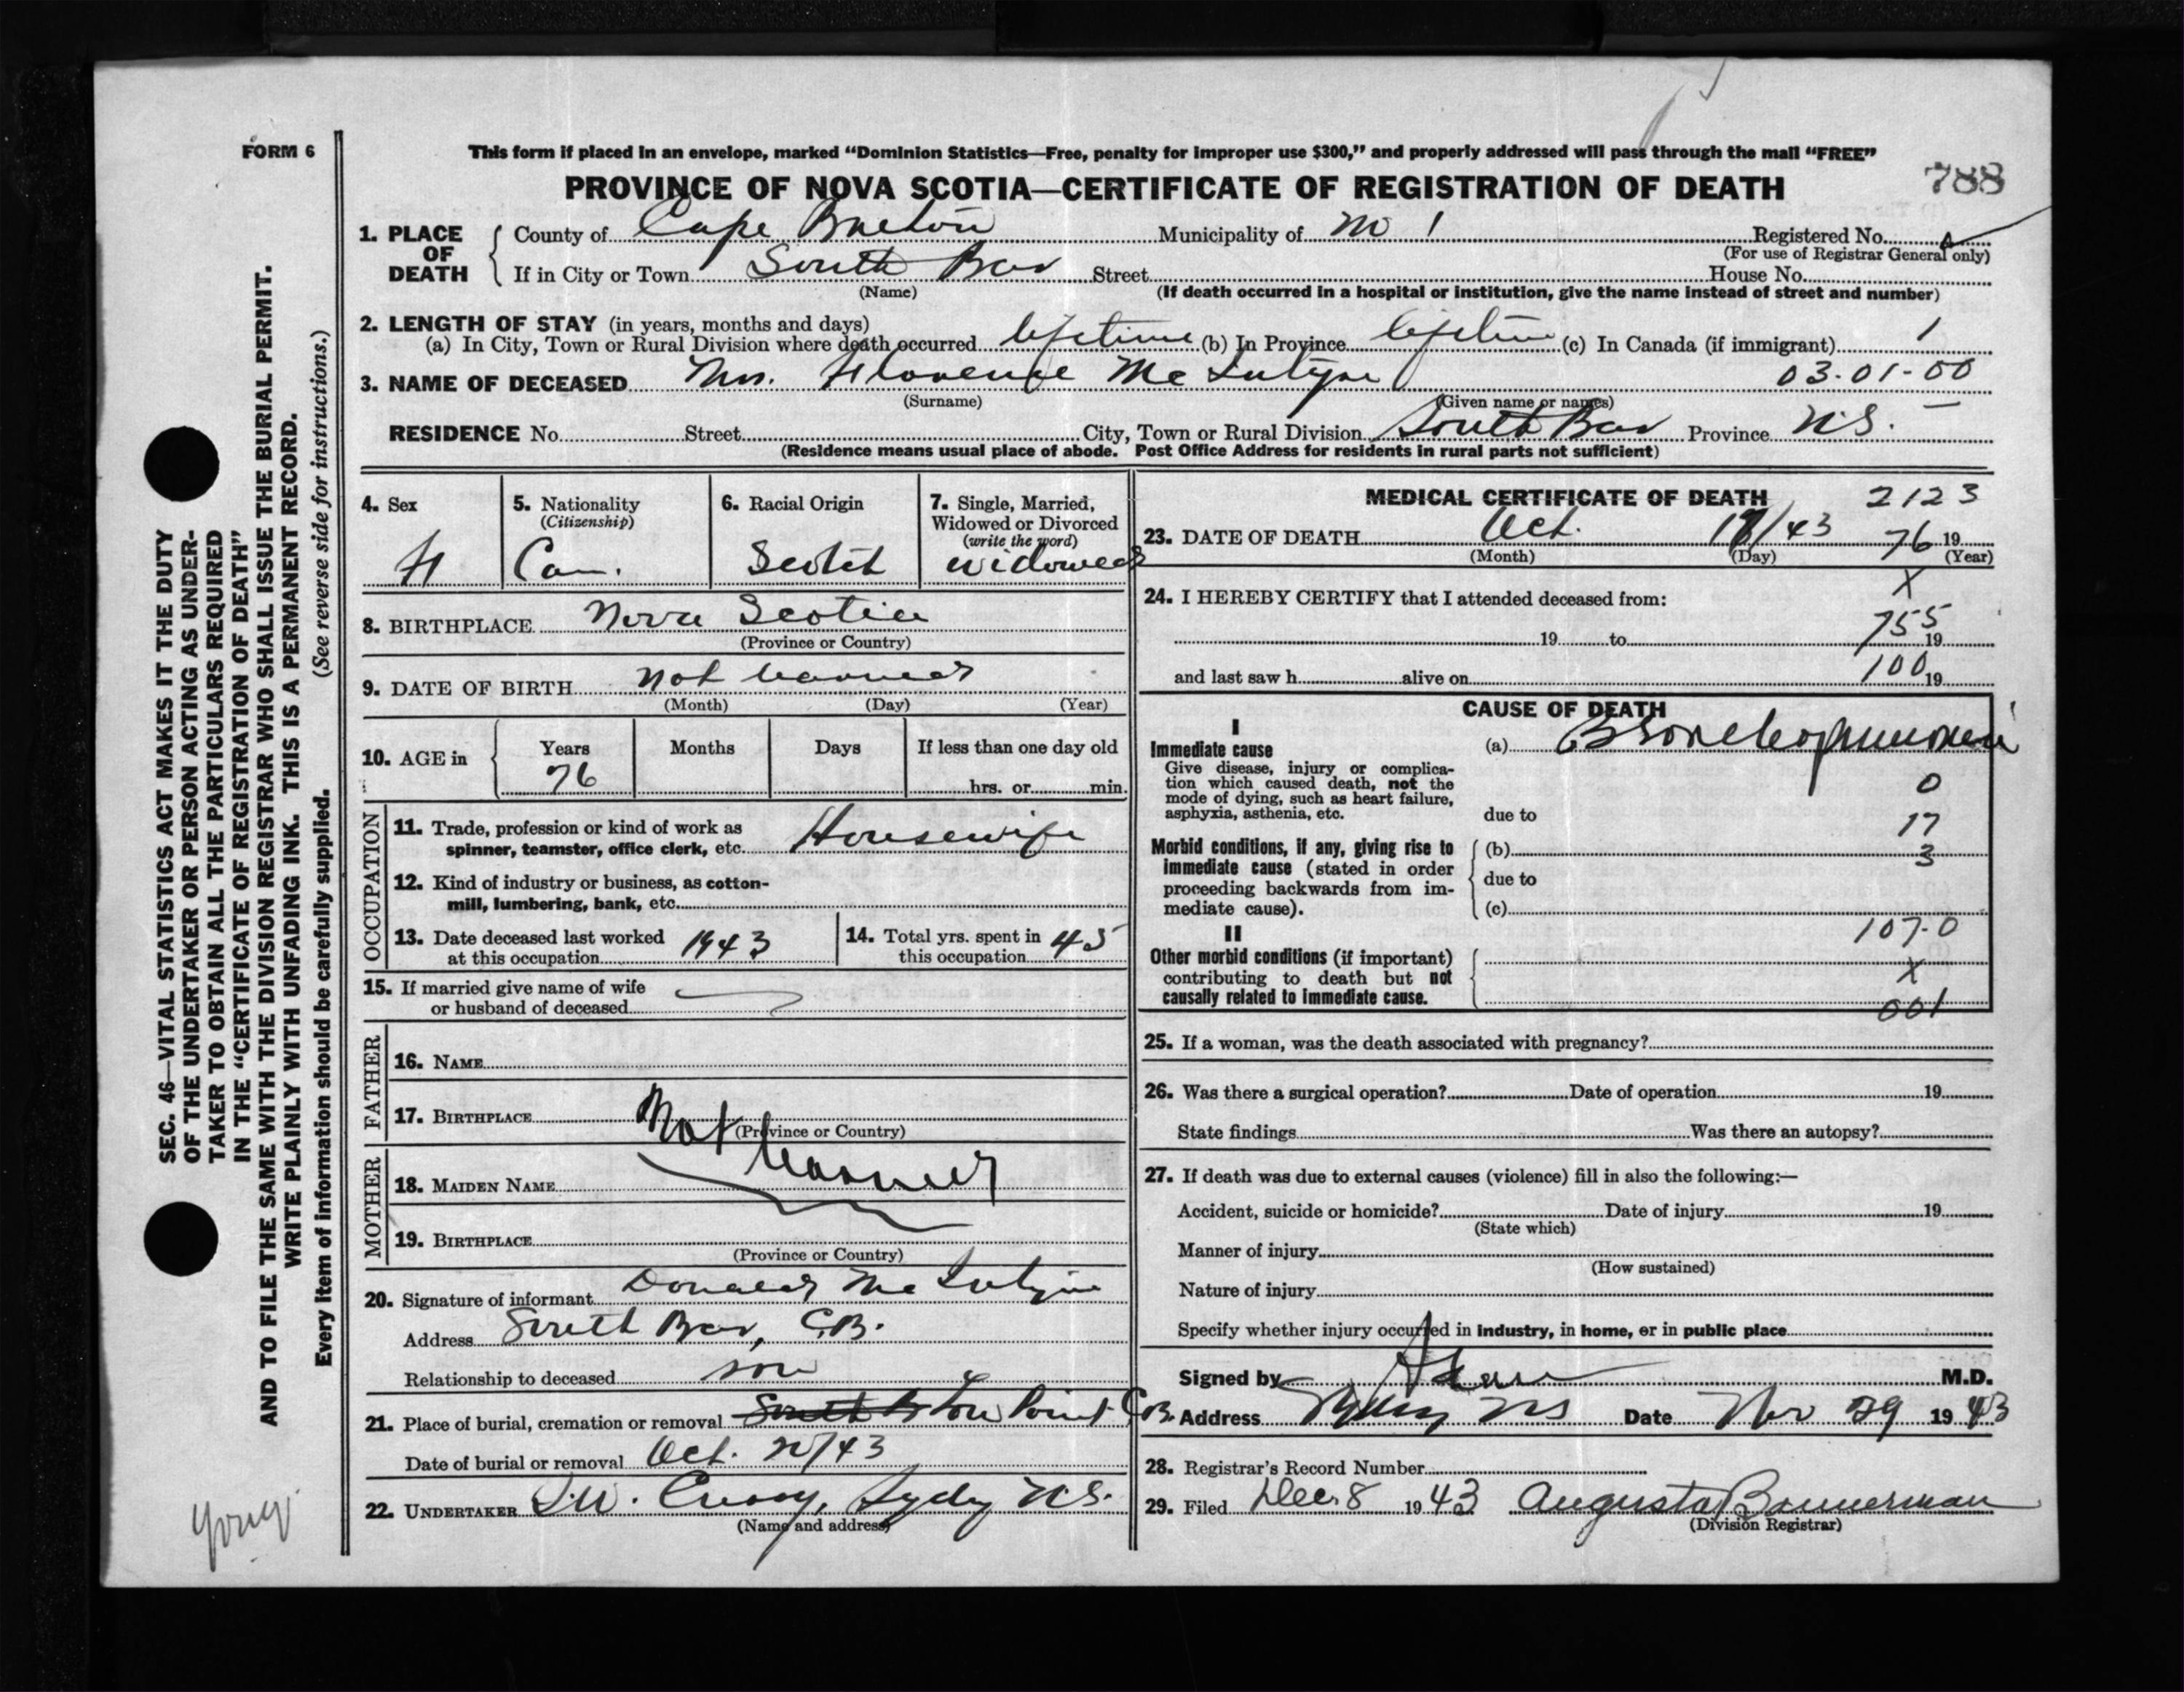 FORM 6
This form if placed in an envelope, marked “Dominion Statistics—Free, penalty for improper use $300,” and properly addressed will pass through the mail “FREE”
PROVINCE OF NOVA SCOTIA—CERTIFICATE OF REGISTRATION OF DEATH
788
1. PLACE OF DEATH
County of Cape Breton Municipality of No 1 Registered No.
(For use of Registrar General only)
If in City or Town South Bar Street House No.
(Name) (If death occurred in a hospital or institution, give the name instead of street and number)
2. LENGTH OF STAY (in years, months and days)
(a) In City, Town or Rural Division where death occurred lifetime (b) In Province lifetime (c) In Canada (if immigrant) 1
3. NAME OF DECEASED Mrs. Florence McIntyre 03-01-00
(Surname) (Given name or names)
RESIDENCE No. Street City, Town or Rural Division South Bar Province N.S. —
(Residence means usual place of abode. Post Office Address for residents in rural parts not sufficient)
4. Sex
F
5. Nationality
(Citizenship)
Can.
6. Racial Origin
Scotch
7. Single, Married,
Widowed or Divorced
(write the word)
widowed
8. BIRTHPLACE Nova Scotia
(Province or Country)
9. DATE OF BIRTH Not learned
(Month) (Day) (Year)
10. AGE in
Years Months Days If less than one day old
76 hrs. or min.
OCCUPATION
11. Trade, profession or kind of work as
spinner, teamster, office clerk, etc. Housewife
12. Kind of industry or business, as cotton-
mill, lumbering, bank, etc.
13. Date deceased last worked
at this occupation 1943
14. Total yrs. spent in
this occupation 45
15. If married give name of wife
or husband of deceased
FATHER
16. NAME
17. BIRTHPLACE Not
(Province or Country)
MOTHER
18. MAIDEN NAME learned
19. BIRTHPLACE
(Province or Country)
20. Signature of informant Donald McIntyre
Address South Bar, C.B.
Relationship to deceased son
21. Place of burial, cremation or removal Low Point C.B.
Date of burial or removal Oct. 20/43
22. UNDERTAKER Sydney N.S.
(Name and address)
MEDICAL CERTIFICATE OF DEATH 2123
23. DATE OF DEATH Oct. /43 76 19
(Month) (Day) (Year)
X
24. I HEREBY CERTIFY that I attended deceased from:
755
19 to 19
100
and last saw h alive on 19
CAUSE OF DEATH
I
Immediate cause
Give disease, injury or complica-
tion which caused death, not the
mode of dying, such as heart failure,
asphyxia, asthenia, etc.
(a) Bronchopneumonia
0
due to
17
Morbid conditions, if any, giving rise to
immediate cause (stated in order
proceeding backwards from im-
mediate cause).
(b) 3
due to
(c)
107-0
II
Other morbid conditions (if important)
contributing to death but not
causally related to immediate cause.
X
001
25. If a woman, was the death associated with pregnancy?
26. Was there a surgical operation? Date of operation 19
State findings Was there an autopsy?
27. If death was due to external causes (violence) fill in also the following:—
Accident, suicide or homicide? Date of injury 19
(State which)
Manner of injury
(How sustained)
Nature of injury
Specify whether injury occurred in industry, in home, or in public place
Signed by M.D.
Address Sydney NS Date Nov 29 1943
28. Registrar's Record Number
29. Filed Dec. 8 1943 Augusta Bannerman
(Division Registrar)
SEC. 46—VITAL STATISTICS ACT MAKES IT THE DUTY
OF THE UNDERTAKER OR PERSON ACTING AS UNDER-
TAKER TO OBTAIN ALL THE PARTICULARS REQUIRED
IN THE “CERTIFICATE OF REGISTRATION OF DEATH”
AND TO FILE THE SAME WITH THE DIVISION REGISTRAR WHO SHALL ISSUE THE BURIAL PERMIT.
WRITE PLAINLY WITH UNFADING INK. THIS IS A PERMANENT RECORD.
Every item of information should be carefully supplied. (See reverse side for instructions.)